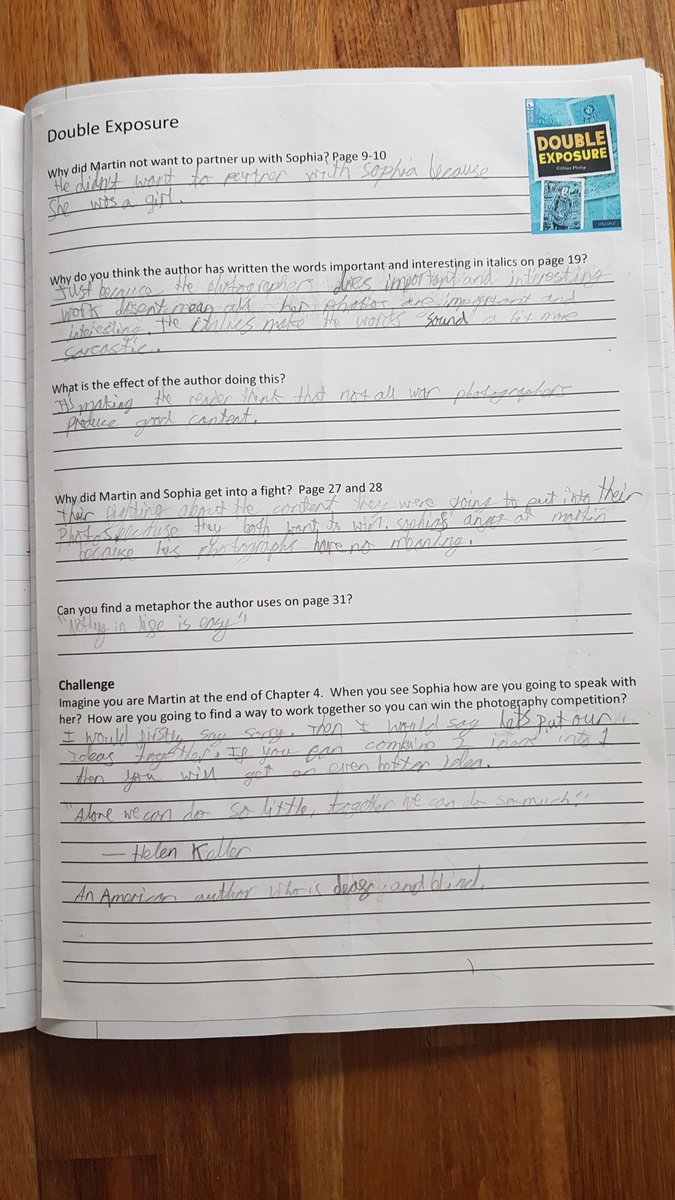 Double Exposure
DOUBLE
EXPOSURE
Gillian Philip
Why did Martin not want to partner up with Sophia? Page 9-10
He didn't want to partner with Sophia because
She was a girl.
Why do you think the author has written the words important and interesting in italics on page 19?
Just because the photographers does important and interesting
work dosent mean all her photos are important and
interesting. The italics make the words sound a bit more
sarcastic.
What is the effect of the author doing this?
It's making the reader think that not all war photographers
produce good content.
Why did Martin and Sophia get into a fight? Page 27 and 28
Their fighting about the content they were going to put into their
Photos because they both want to win. Sophias angry at martin
because his photographs have no meaning.
Can you find a metaphor the author uses on page 31?
"Nothing in life is easy"
Challenge
Imagine you are Martin at the end of Chapter 4. When you see Sophia how are you going to speak with
her? How are you going to find a way to work together so you can win the photography competition?
I would firstly say sorry. Then I would say lets put our
Ideas together. If you can combine 2 ideas into 1
then you will get an even better idea.
"Alone we can do so little, together we can do so much"
— Helen Keller
An American author who is deaf and blind.